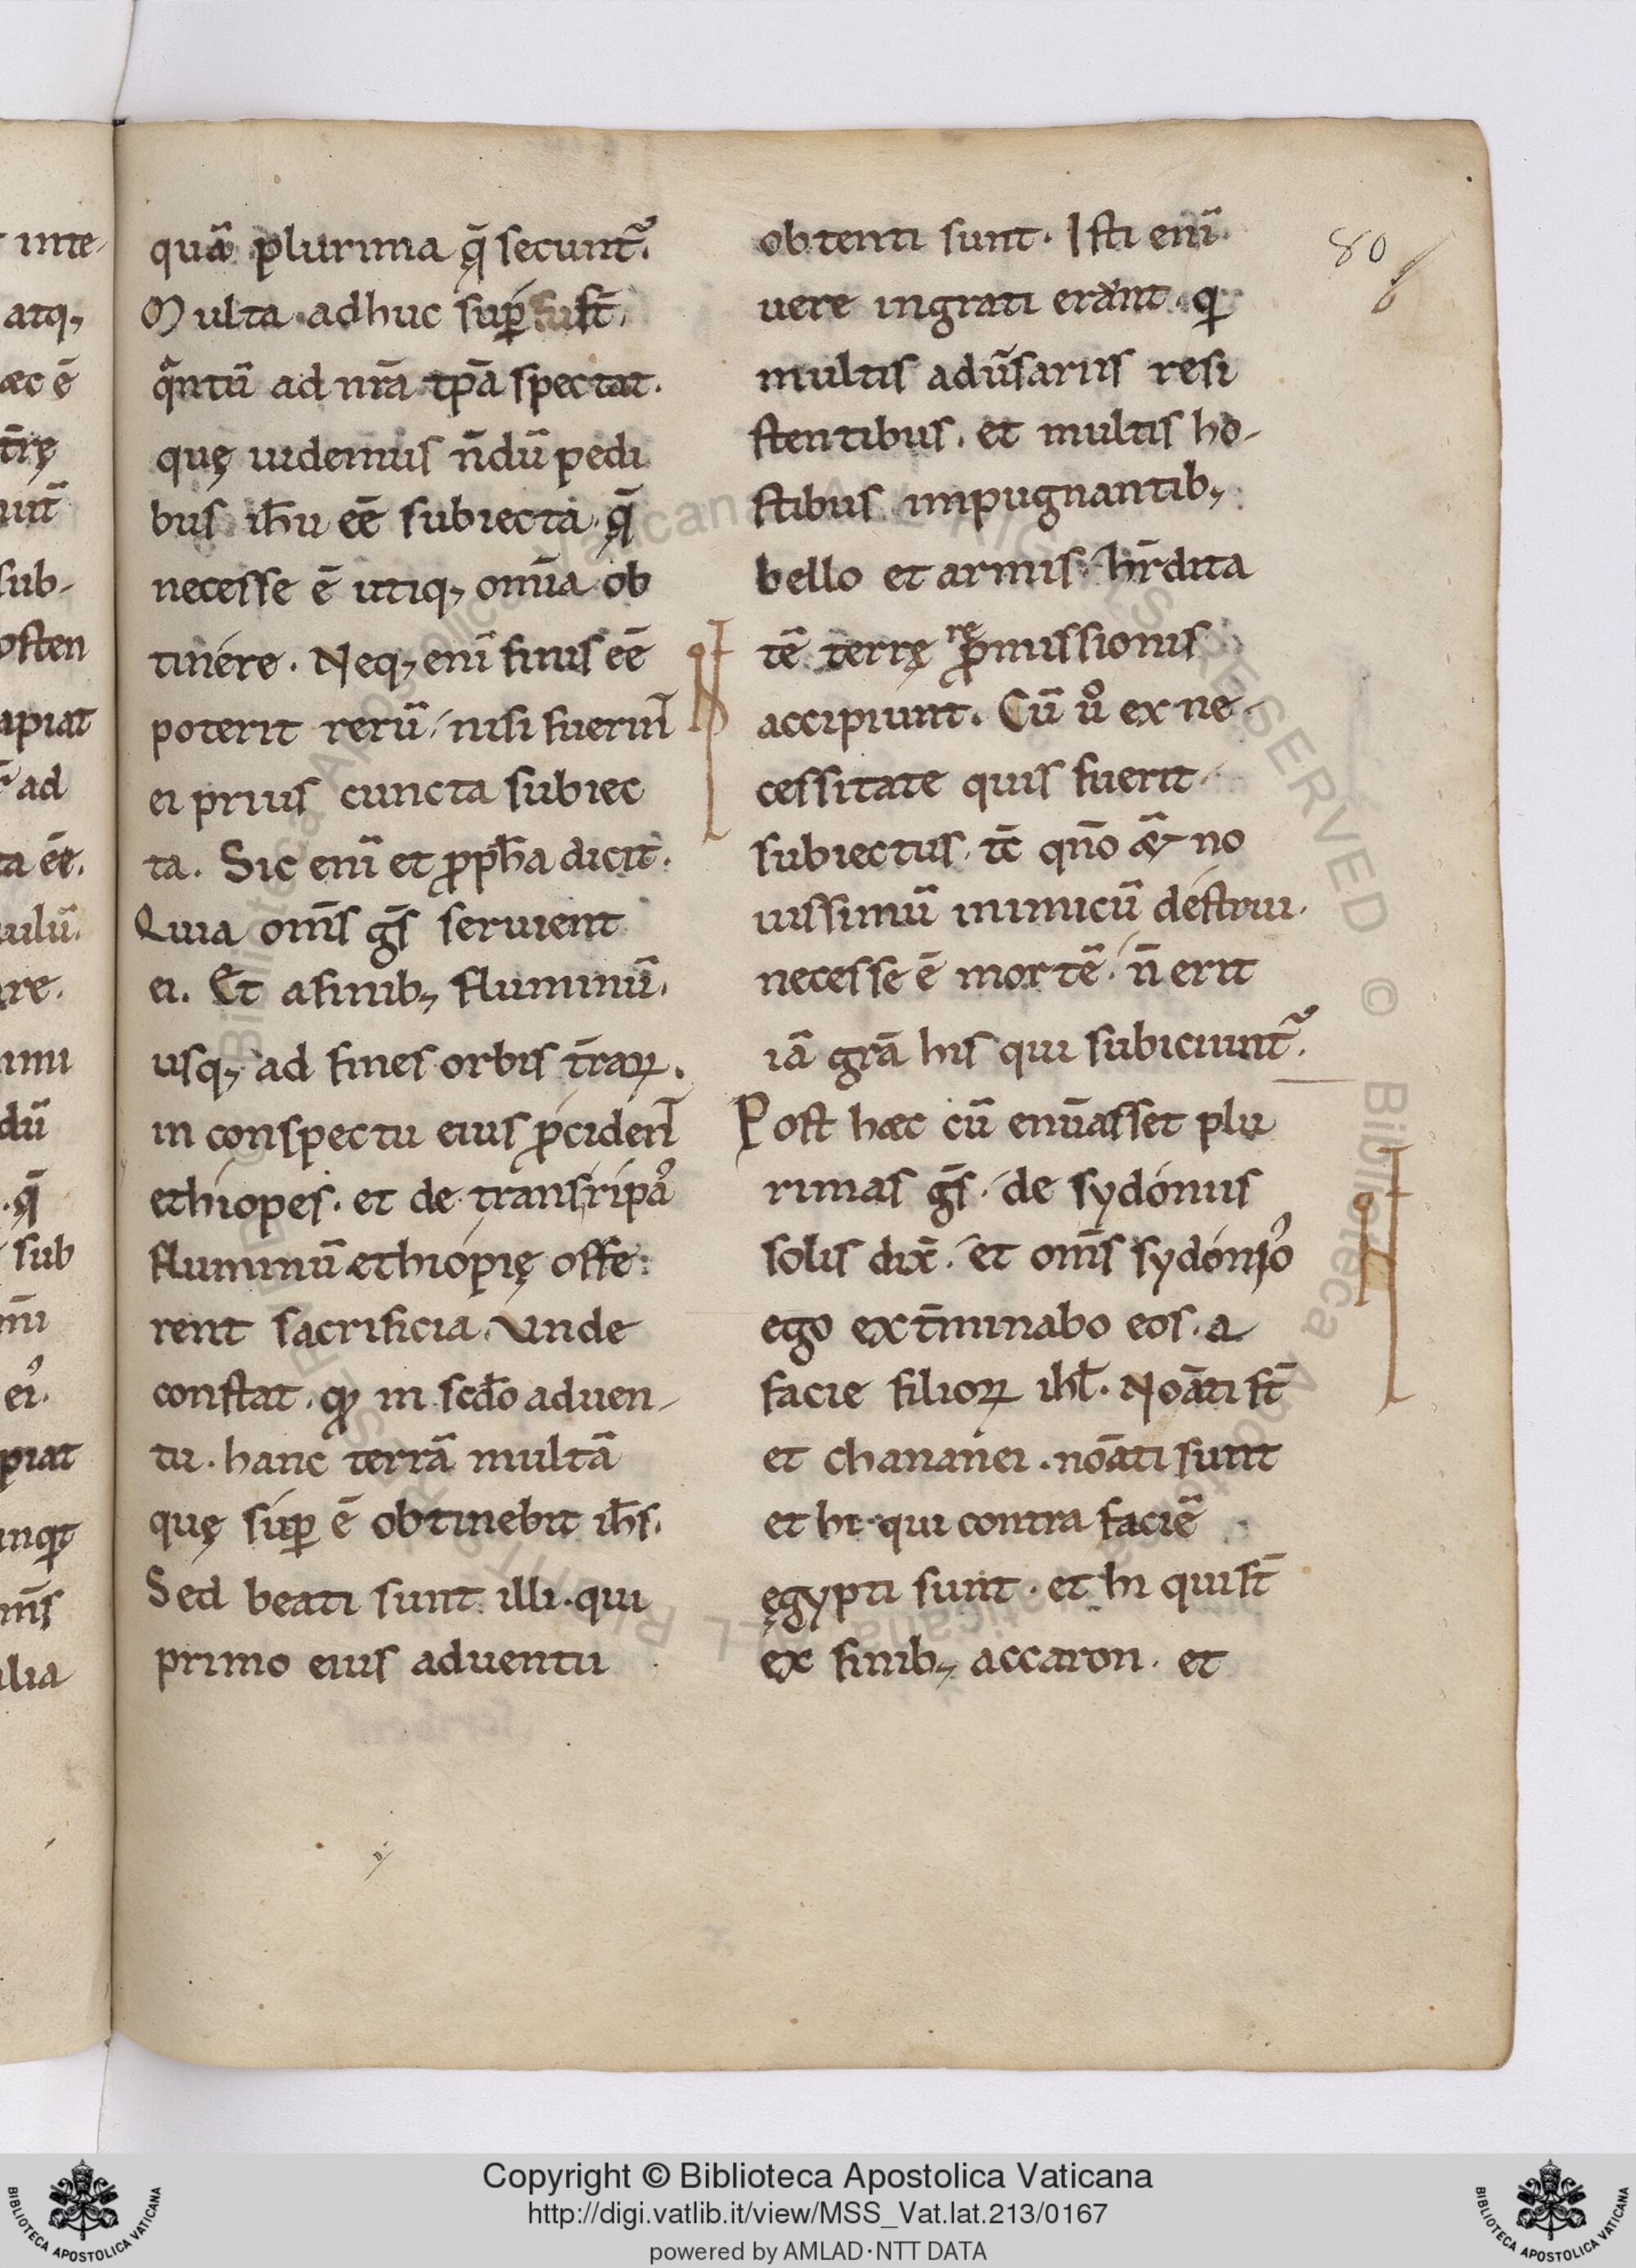 quā plurima q̄ secunt᷑.
Multa adhuc suꝑ sūt,
qͣntū ad nr̄a tp̄a spectat.
quę uidemus n̄dū pedi
bus ih̄u eē subiecta, q̄
necesse ē utiq; om̄ia ob
tinere. Neq; eni̅ finis eē
poterit rerū, nisi fuerin̄
ei prius cuncta subiec
ta. Sic eni̅ et ꝓph̄a dicit.
Quia om̄s gs̄ seruient
ei. Et a finib; fluminū.
usq; ad fines orbis tr̄aꝝ.
in conspectu eius ꝓciden̄
ethiopes. et de transripaͥ
fluminū ethiopię offe
rent sacrificia. Vnde
constat. qđ in scd̄o aduen-
tu. hanc terrā multā
quę suꝑ ē obtinebit ih̄s.
Sed beati sunt illi. qui
primo eius aduentu
obtenti sunt. Isti eni̅
uere in grati erant. qͥ
multis adūsariis resi
stentibus. et multis ho-
stibus inpugnantib;
bello et armis hr̄dita
tē terrę ꝓmissionis
re
accipiunt. Cū uͦ ex ne
cessitate quis fuerit
subiectus. tc̄ qn̄o &̄ no
uissimū inimicū destrui.
necesse ē mortē. n̄ erit
iā gr̄a his qui subiciunt᷑.
Post hæc cū enūasset plu
rimas gs̄. de sydoniis
solis dix̄. et om̄s sydonioͥ
ego ext̄minabo eos. a
facie filioꝝ ihl̄. Noāti st̄
et chananei. noāti sunt
et hi qui contra faciē
ęgypti sunt. et hi qui st̄
ex finib; accaron. et
80
inte-
atq;
æc ē
tr̄ę
uit̄
sub-
osten
apiat
ad
ta eē.
uulū.
re.
imi
dū
q̄
sub
eiͥ.
piat
m̄s
ilia
Copyright © Biblioteca Apostolica Vaticana
http://digi.vatlib.it/view/MSS_Vat.lat.213/0167
powered by AMLAD·NTT DATA
BIBLIOTECA APOSTOLICA VATICANA
BIBLIOTECA APOSTOLICA VATICANA